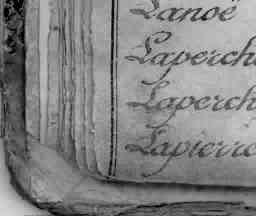 Lanoë
Laperche
Laperch
Lapierre